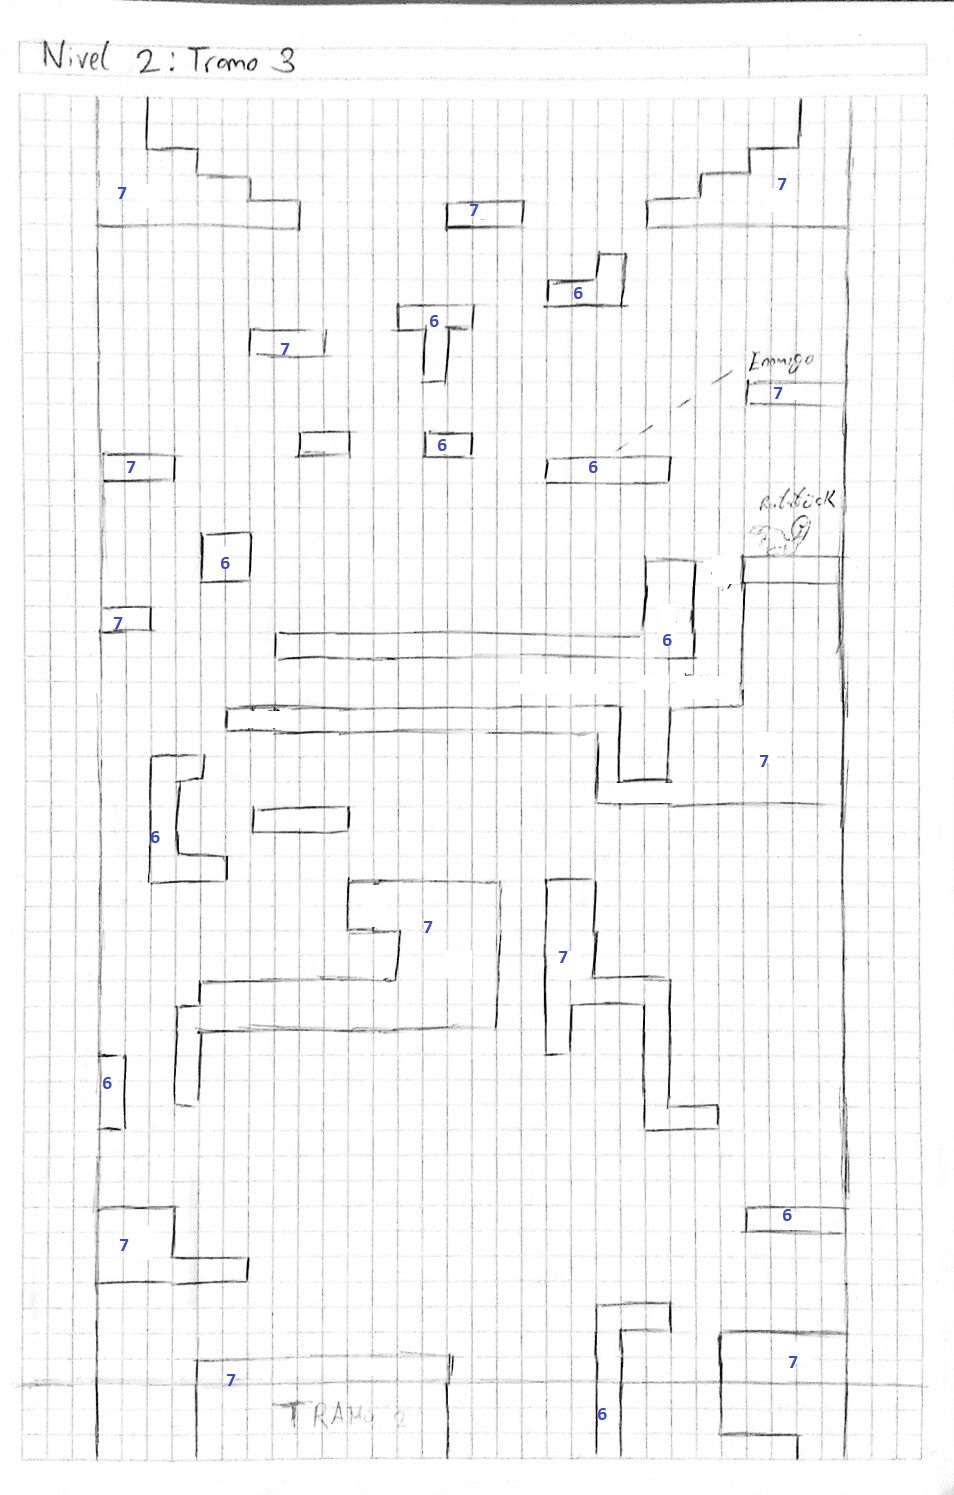 Nivel 2: Tramo 3
7
7
7
6
6
7
Enemigo
7
6
7
6
6
7
6
7
6
6
7
7
7
6
6
7
6
7
7
TRAMO 2
6